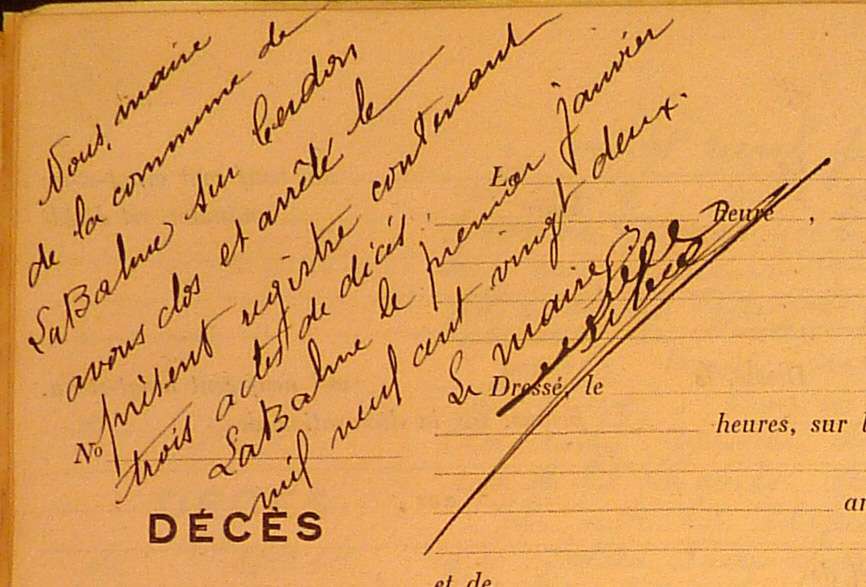 Nous, maire
de la commune de
LaBalme sur Cerdon
avons clos et arrêté le
présent registre contenant
trois actes de décès.
LaBalme le premier janvier
mil neuf cent vingt deux.
Le maire
E
heure ,
Dressé, le
heures, sur l
No
DÉCÈS
an
et de